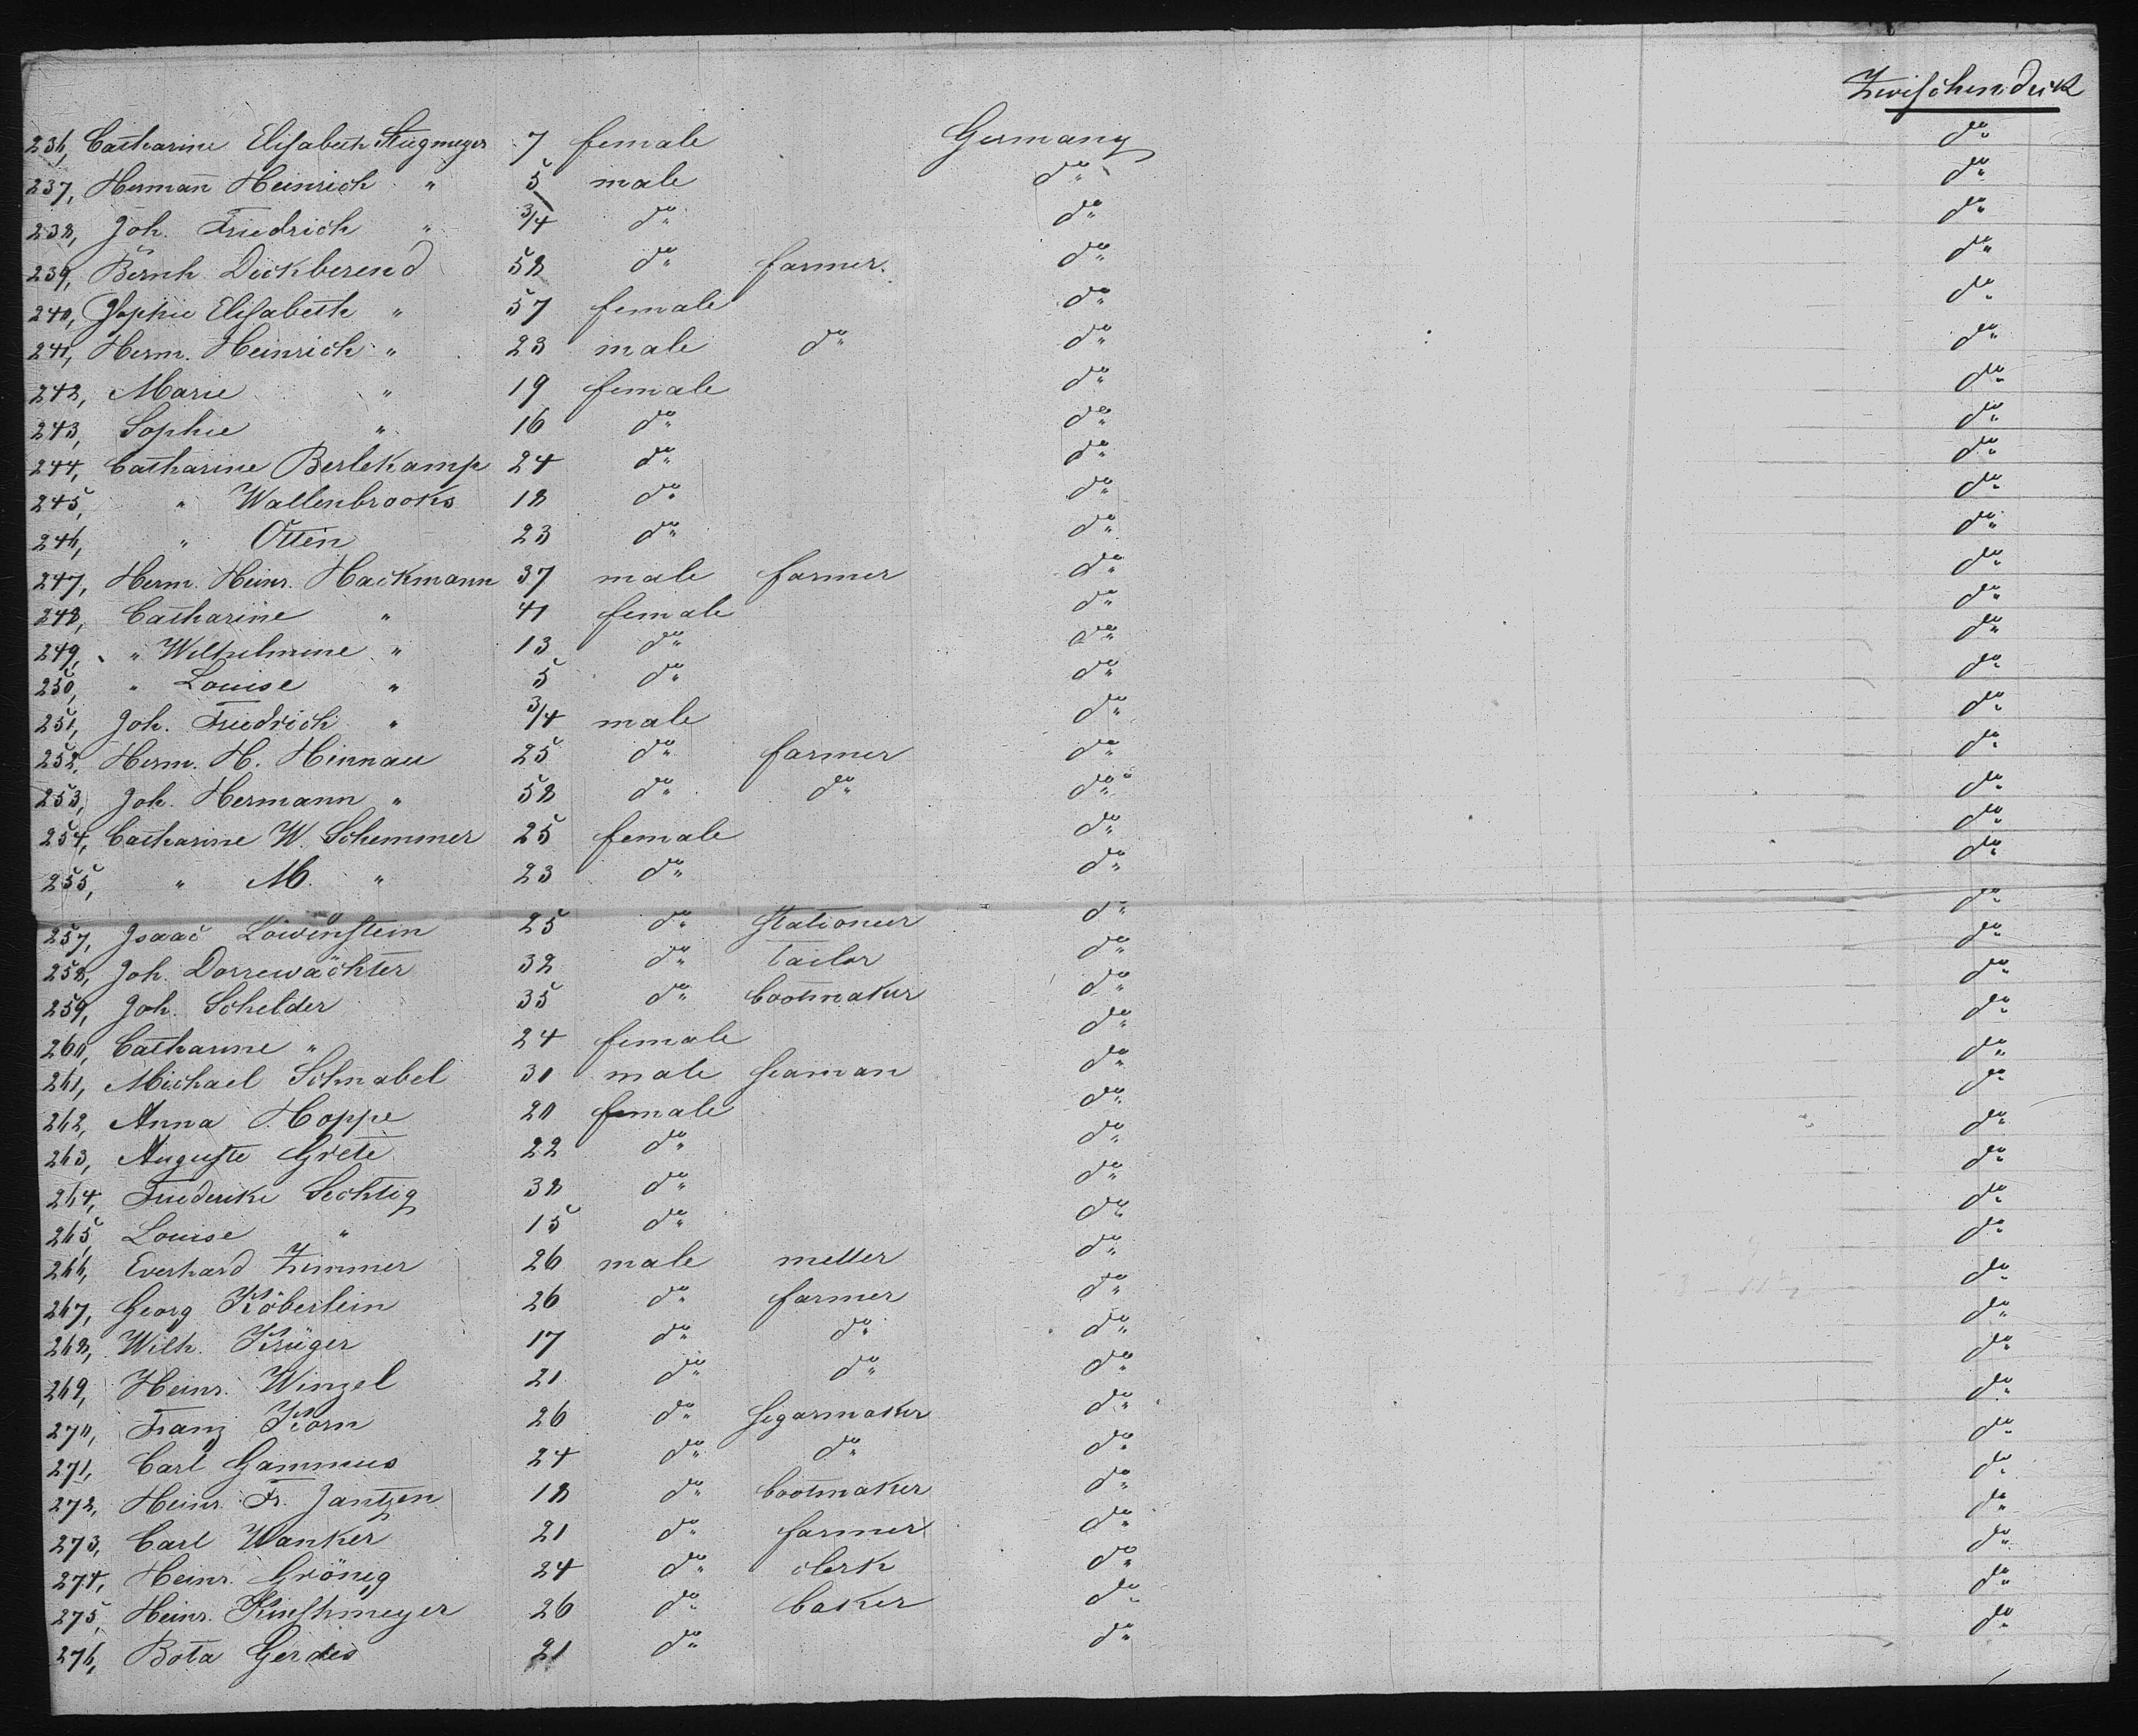 Zwischendeck
236, Catharine Elisabeth Stiegmeyer 7 female Germany do
237, Hermann Heinrich " 5 male do do
238, Joh. Friedrich " 3/4 do do do
239, Bernh. Dickberend 58 do farmer. do do
240, Sophie Elisabeth " 57 female do do
241, Herm. Heinrich " 23 male do do do
242, Marie " 19 female do do
243, Sophie " 16 do do do
244, Catharine Berlekamp 24 do do do
245, " Wallenbrooks 18 do do do
246, " Otten 23 do do do
247, Herm. Heinr. Hackmann 37 male farmer do do
248, Catharine " 41 female do do
249, " Wilhelmine " 13 do do do
250, " Louise " 5 do do do
251, Joh. Friedrich " 3/4 male do do
252, Herm. H. Hinnau 25 do farmer do do
253, Joh. Hermann " 58 do do do do
254, Catharine W. Schemmer 25 female do do
255, " M. " 23 do do do
257, Isaac Löwenstein 25 do Stationeer do do
258, Joh. Dorrewächter 32 do Tailor do do
259, Joh. Schelder 35 do bootmaker do do
260, Catharine " 24 female do do
261, Michael Schnabel 30 male seaman do do
262, Anna Hoppe 20 female do do
263, Auguste Grete 22 do do do
264, Friederike Sechtig 38 do do do
265, Louise " 15 do do do
266, Everhard Zimmer 26 male meller do do
267, Georg Köberlein 26 do farmer do do
268, Wilh. Krüger 17 do do do do
269, Heinr. Winzel 21 do do do do
270, Franz Korn 26 do segarmaker do do
271, Carl Gammus 24 do do do do
272, Heinr. Fr. Jantzen 18 do bootmaker do do
273, Carl Wanker 21 do farmer do do
274, Heinr. Grönig 24 do clerk do do
275, Heinr. 26 do baker do do
276, Bota Gerdes 21 do do do